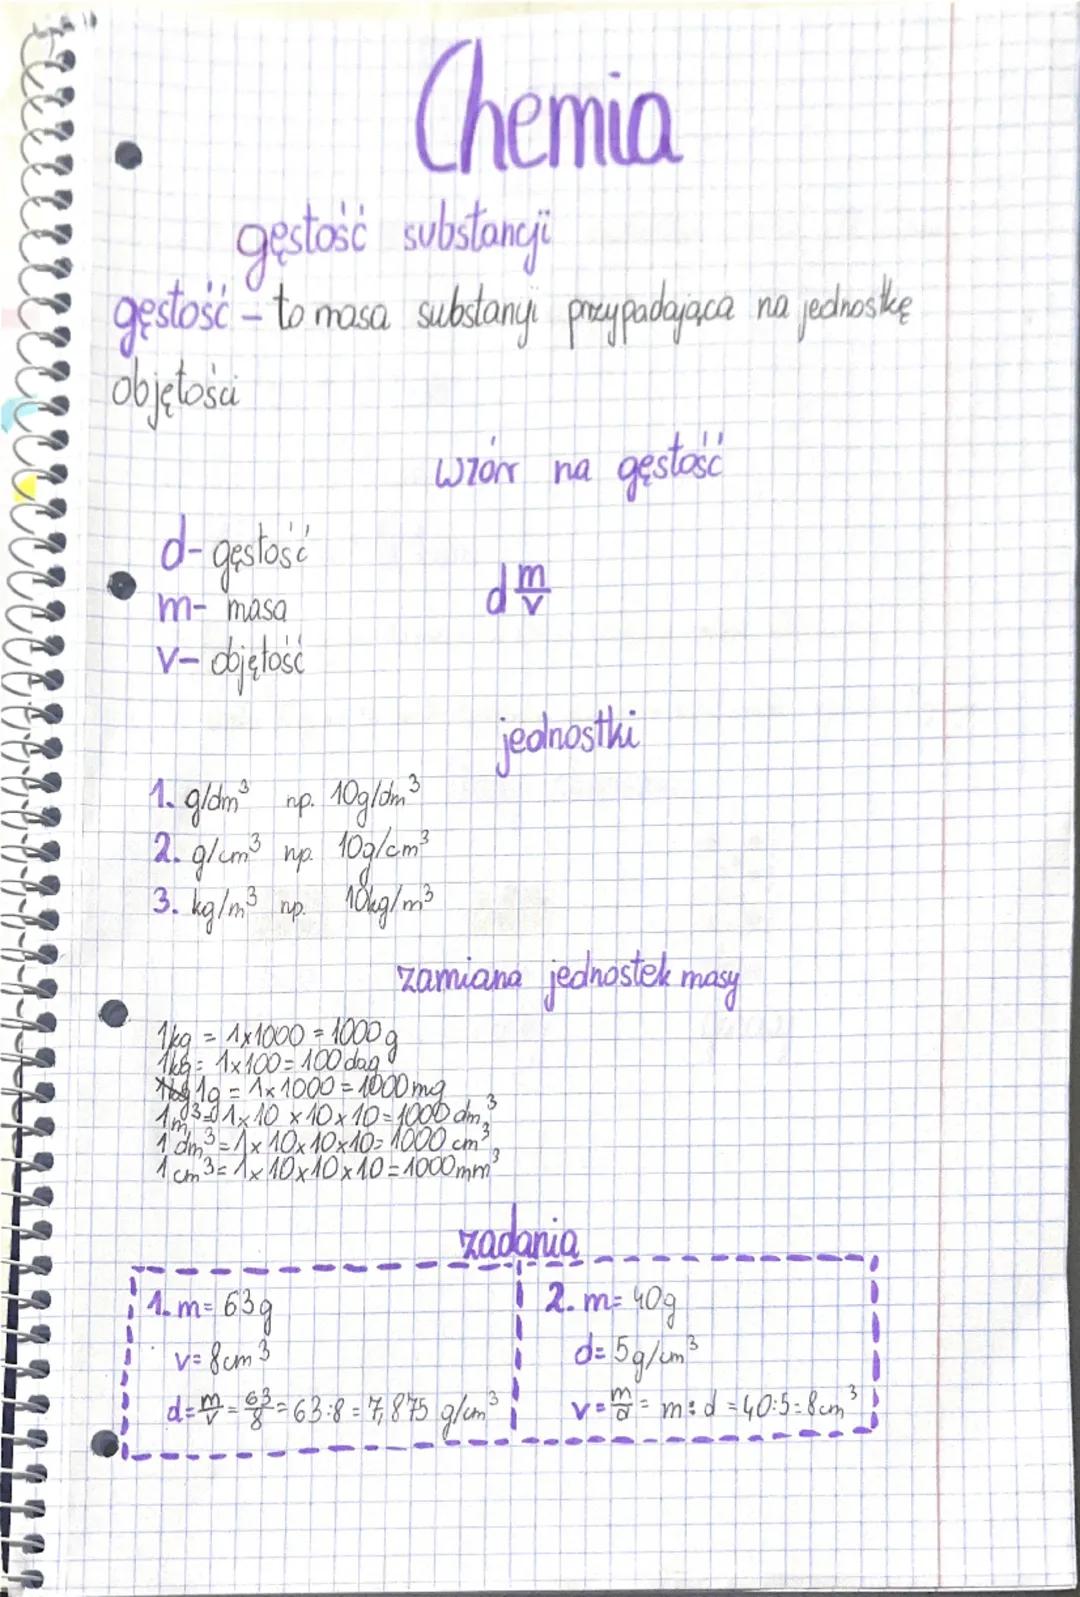 Chemia
gęstość substancji
gęstość - to masa substanyi przypadająca na jednostkę
objętości
wzórr na gęstość
d- gęstość
m- masa
v- objętość
d m/v
jednostki
1. g/dm³ np. 10g/dm³
2. g/cm³ np. 10g/cm³
3. kg/m³ np. 10kg/m³
zamiana jednostek masy
1kg = 1x1000 = 1000g
1kg = 1x100 = 100dag
1g = 1x1000 = 1000mg
1m³ = 1x10x10x10 = 1000dm³
1dm³ = 1x10x10x10 = 1000cm³
1cm³ = 1x10x10x10 = 1000mm³
zadania
1. m= 63g
v= 8cm³
d= m/v = 63/8 = 63:8 = 7,875 g/cm³
2. m= 40g
d= 5g/cm³
v= m/d = m:d = 40:5 = 8cm³